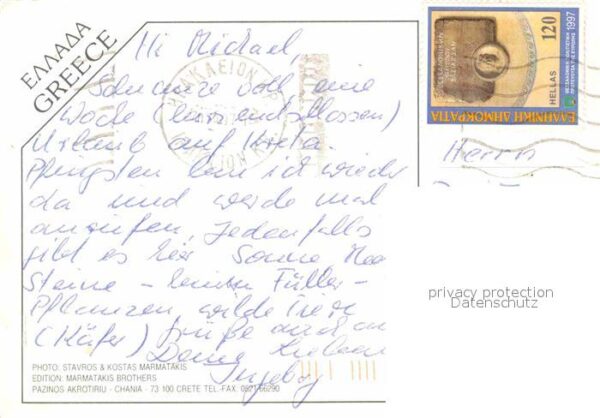 ΕΛΛΑΔΑ
GREECE
Hi Michael,
eine
Woche (kurzentschlossen)
Urlaub auf Kreta.
Pfingsten bin ich wieder
da und werde mal
anrufen, jedenfalls
gibt es hier Sonne Mee
Steine - Füller -
Pflanzen, wilde Tiere
(Käfer) Grüße auch an
Deine Lieben
Ingeborg
Herrn
120
1997
HELLAS
ΕΛΛΗΝΙΚΗ ΔΗΜΟΚΡΑΤΙΑ
privacy protection
Datenschutz
PHOTO: STAVROS & KOSTAS MARMATAKIS
EDITION: MARMATAKIS BROTHERS
PAZINOS AKROTIRIU - CHANIA - 73 100 CRETE TEL.-FAX. 0821-66290